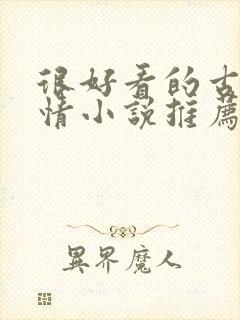 很好看的古
情小說推薦
異界魔人